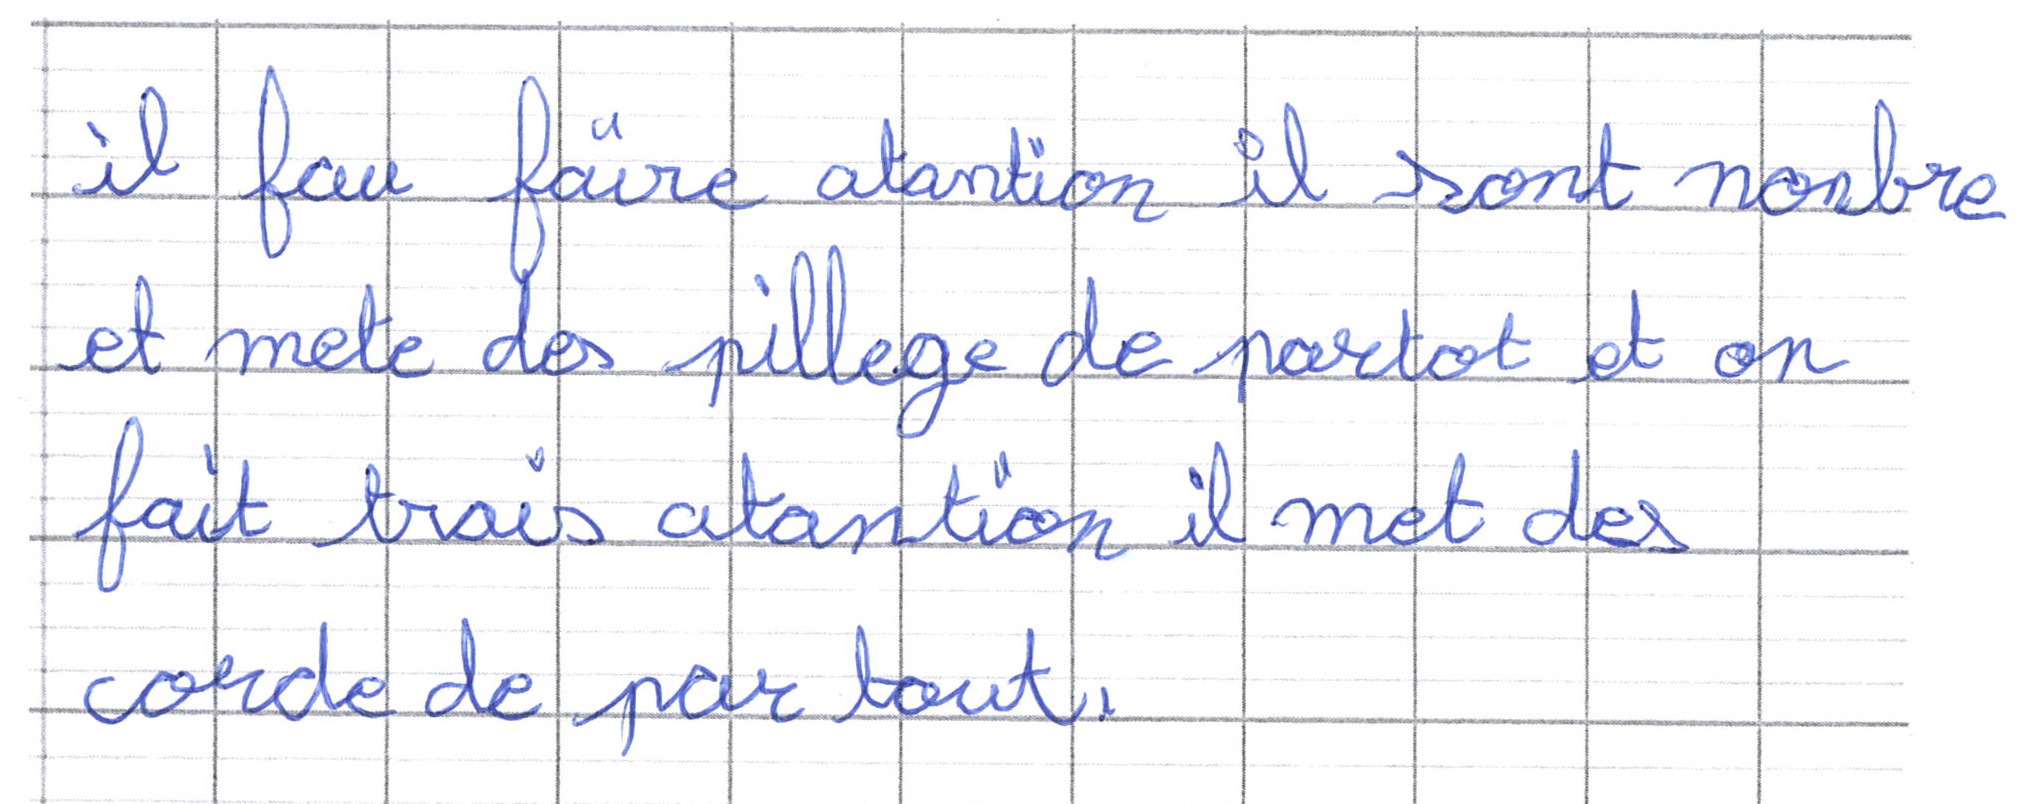 il fau faire atantion il sont nonbre
et mete des pillege de partot et on
fait trais atantion il met des
corde de par tout.